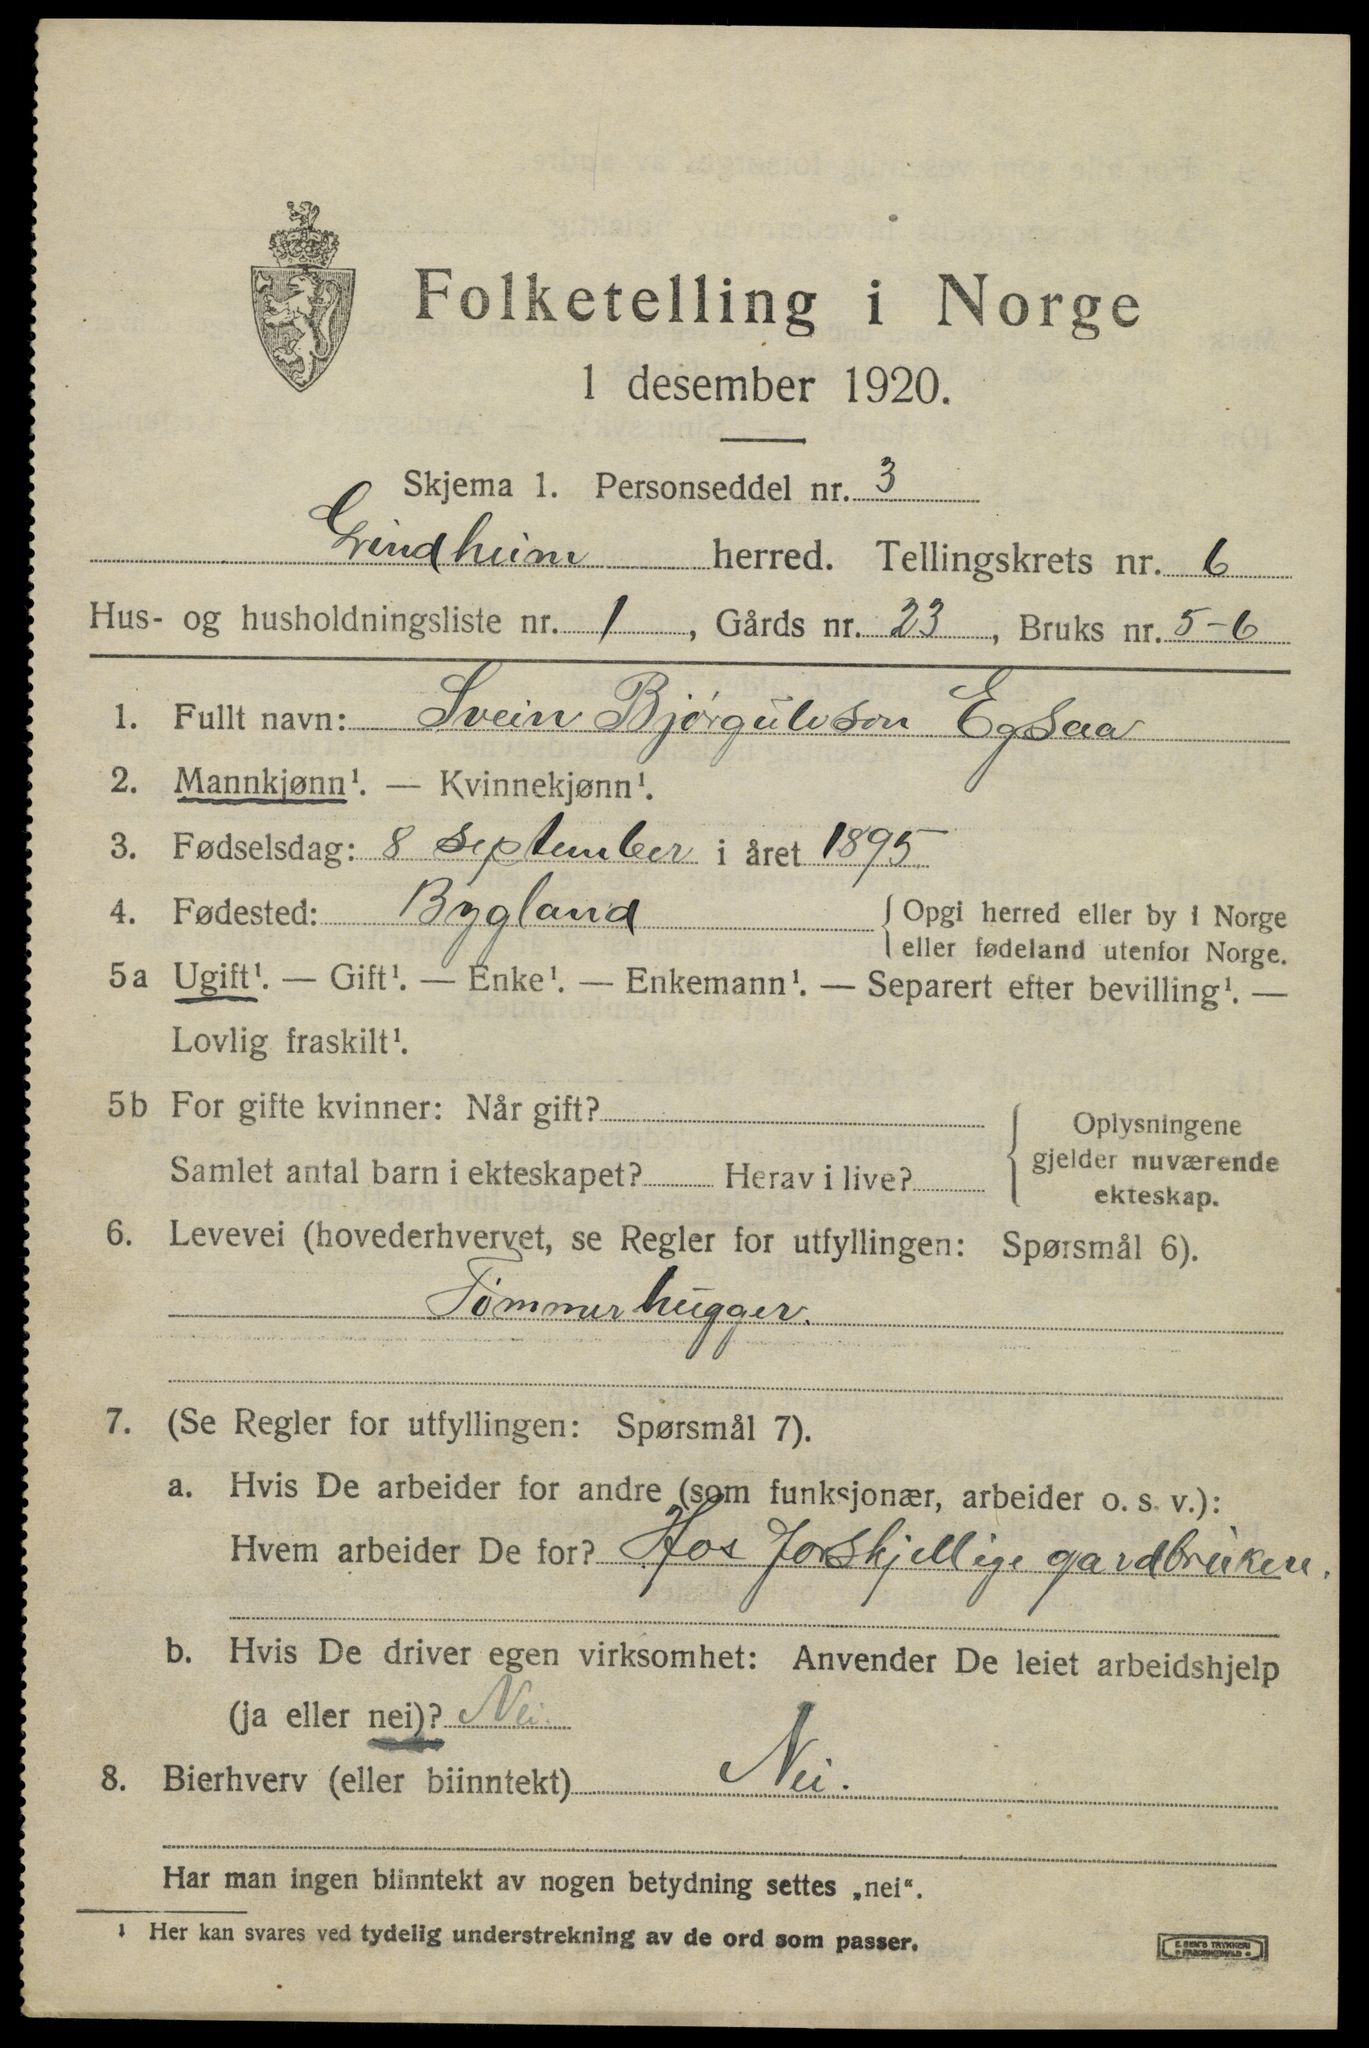 Folketelling i Norge
1 desember 1920.
Skjema 1. Personseddel nr. 3
Grindheim herred. Tellingskrets nr. 6
Hus- og husholdningsliste nr. 1, Gårds nr. 23, Bruks nr. 5-6
1. Fullt navn: Svein Bjørgulvson Egsaa
2. Mannkjønn¹. — Kvinnekjønn¹.
3. Fødselsdag: 8 september i året 1895
4. Fødested: Bygland { Opgi herred eller by i Norge
eller fødeland utenfor Norge.
5a Ugift¹. — Gift¹. — Enke¹. — Enkemann¹. — Separert efter bevilling¹. —
Lovlig fraskilt¹.
5b For gifte kvinner: Når gift?
Samlet antal barn i ekteskapet? Herav i live?
{ Oplysningene
gjelder nuværende
ekteskap.
6. Levevei (hovederhvervet, se Regler for utfyllingen: Spørsmål 6).
Tømmerhugger.
7. (Se Regler for utfyllingen: Spørsmål 7).
a. Hvis De arbeider for andre (som funksjonær, arbeider o. s. v.):
Hvem arbeider De for? Hos forskjellige gardbrukere.
b. Hvis De driver egen virksomhet: Anvender De leiet arbeidshjelp
(ja eller nei)? Nei.
8. Bierhverv (eller biinntekt) Nei.
Har man ingen biinntekt av nogen betydning settes „nei“.
¹ Her kan svares ved tydelig understrekning av de ord som passer.